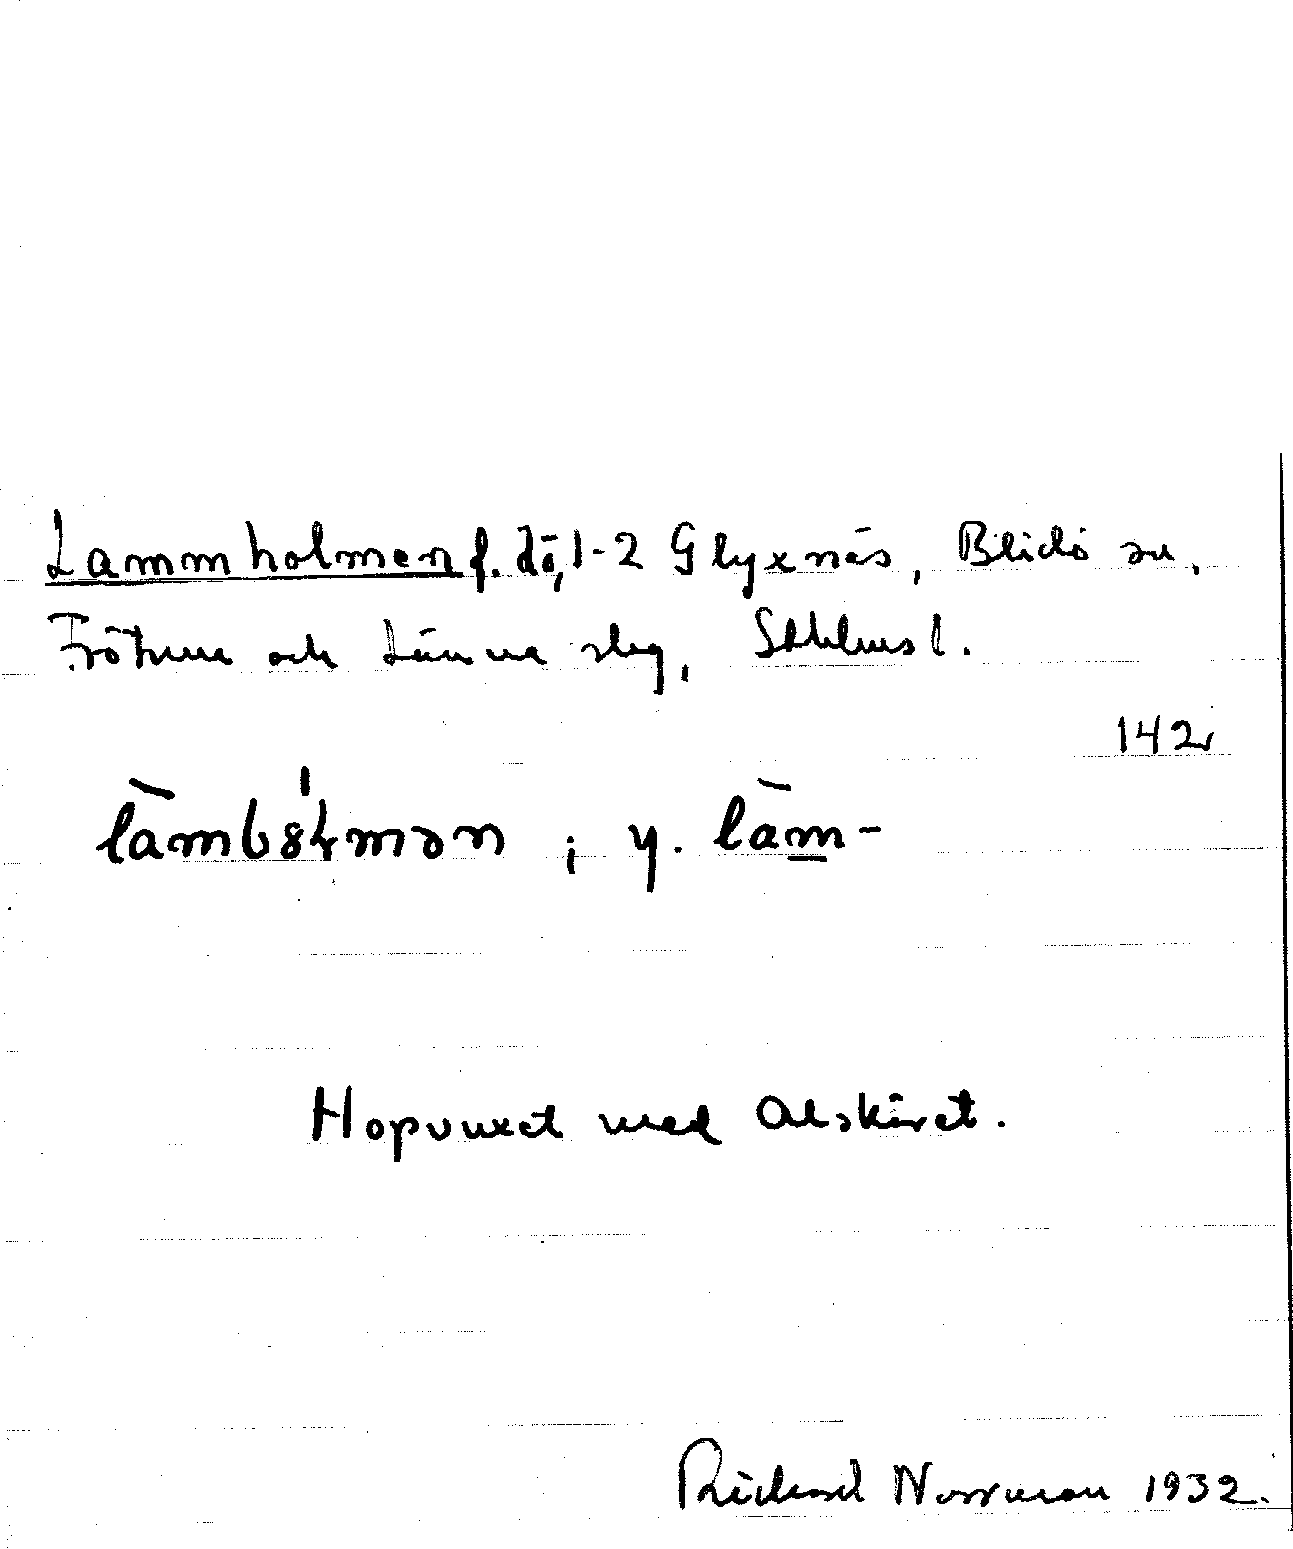 Lammholmen f. dö, 1-2 Glyxnäs, Blidö sn,
Frötuna och Länna slg, Sthlms l.
142
làmbɷ̍ɫmən ; y. làm̲-
Hopvuxet med Alskäret.
Richard Norrman 1932.